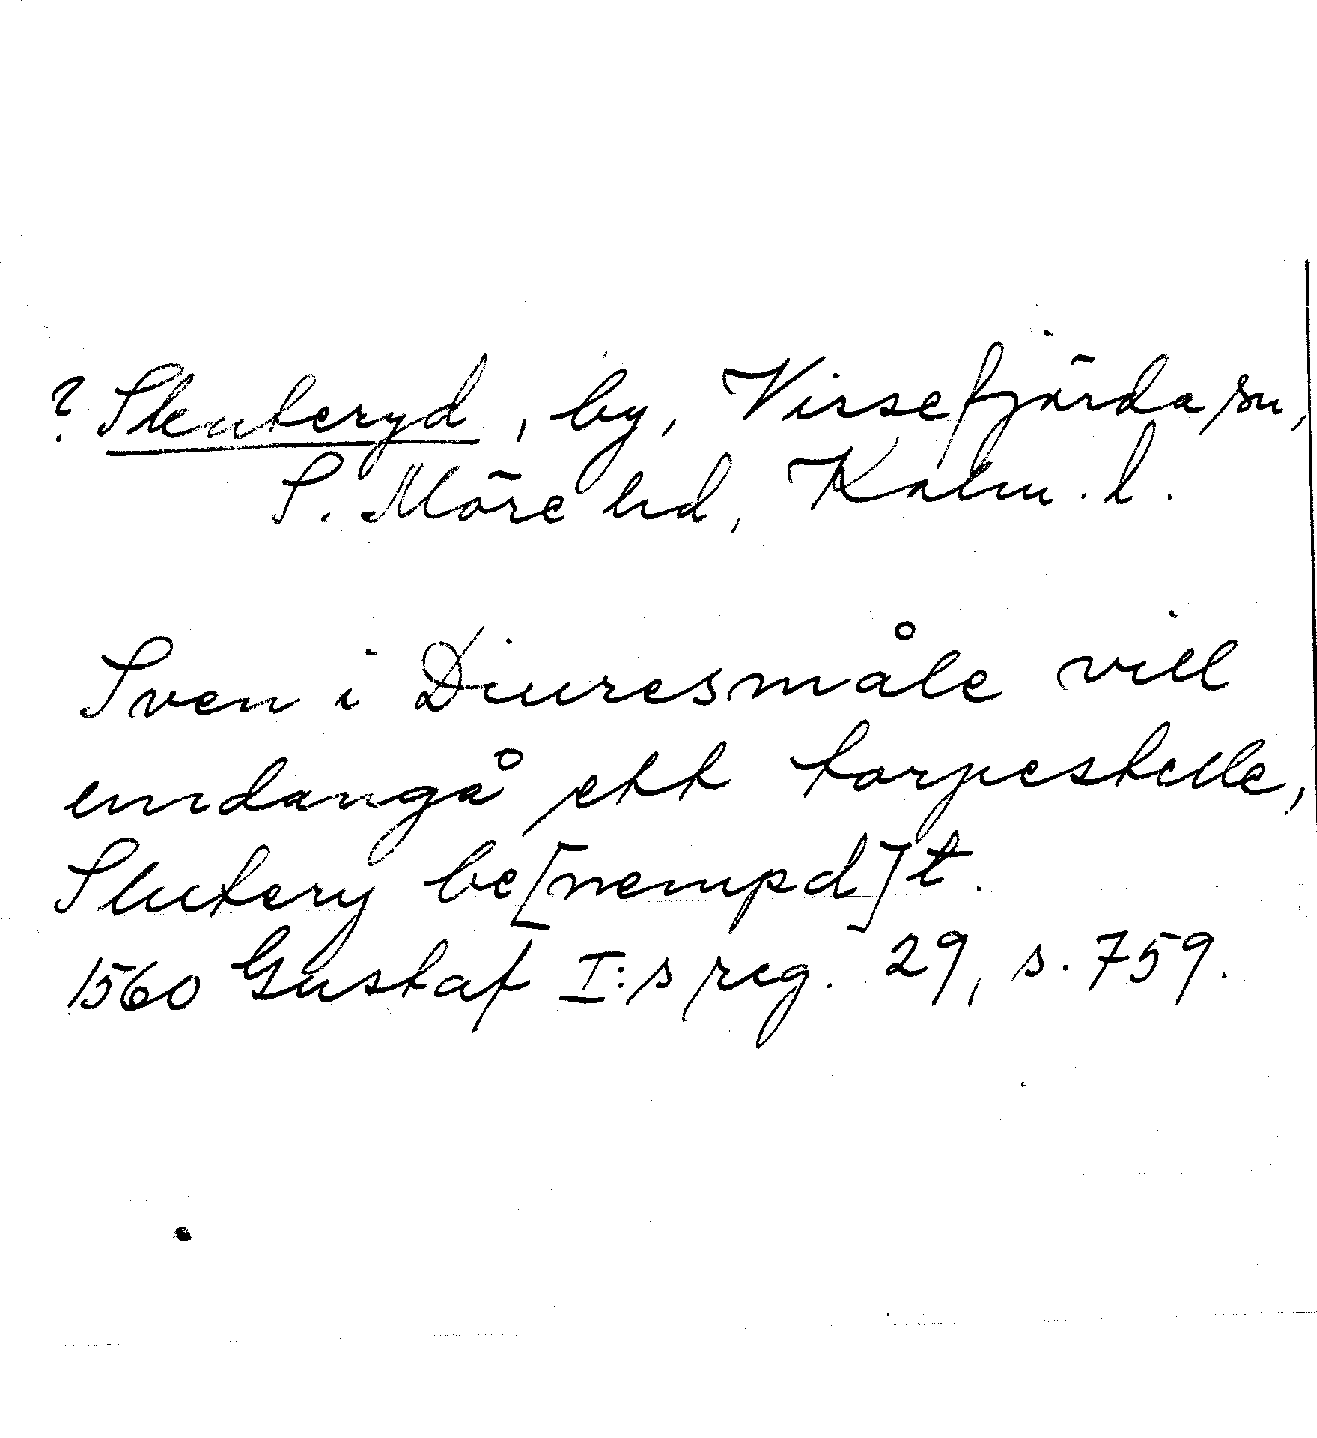 ? Skuteryd, by, Vissefjärda sn,
S. Möre hd, Kalm. l.
Sven i Diuresmåle vill
undangå ett torpestelle,
Slutery be[nempd]t.
1560 Gustaf I:s reg. 29, s. 759.